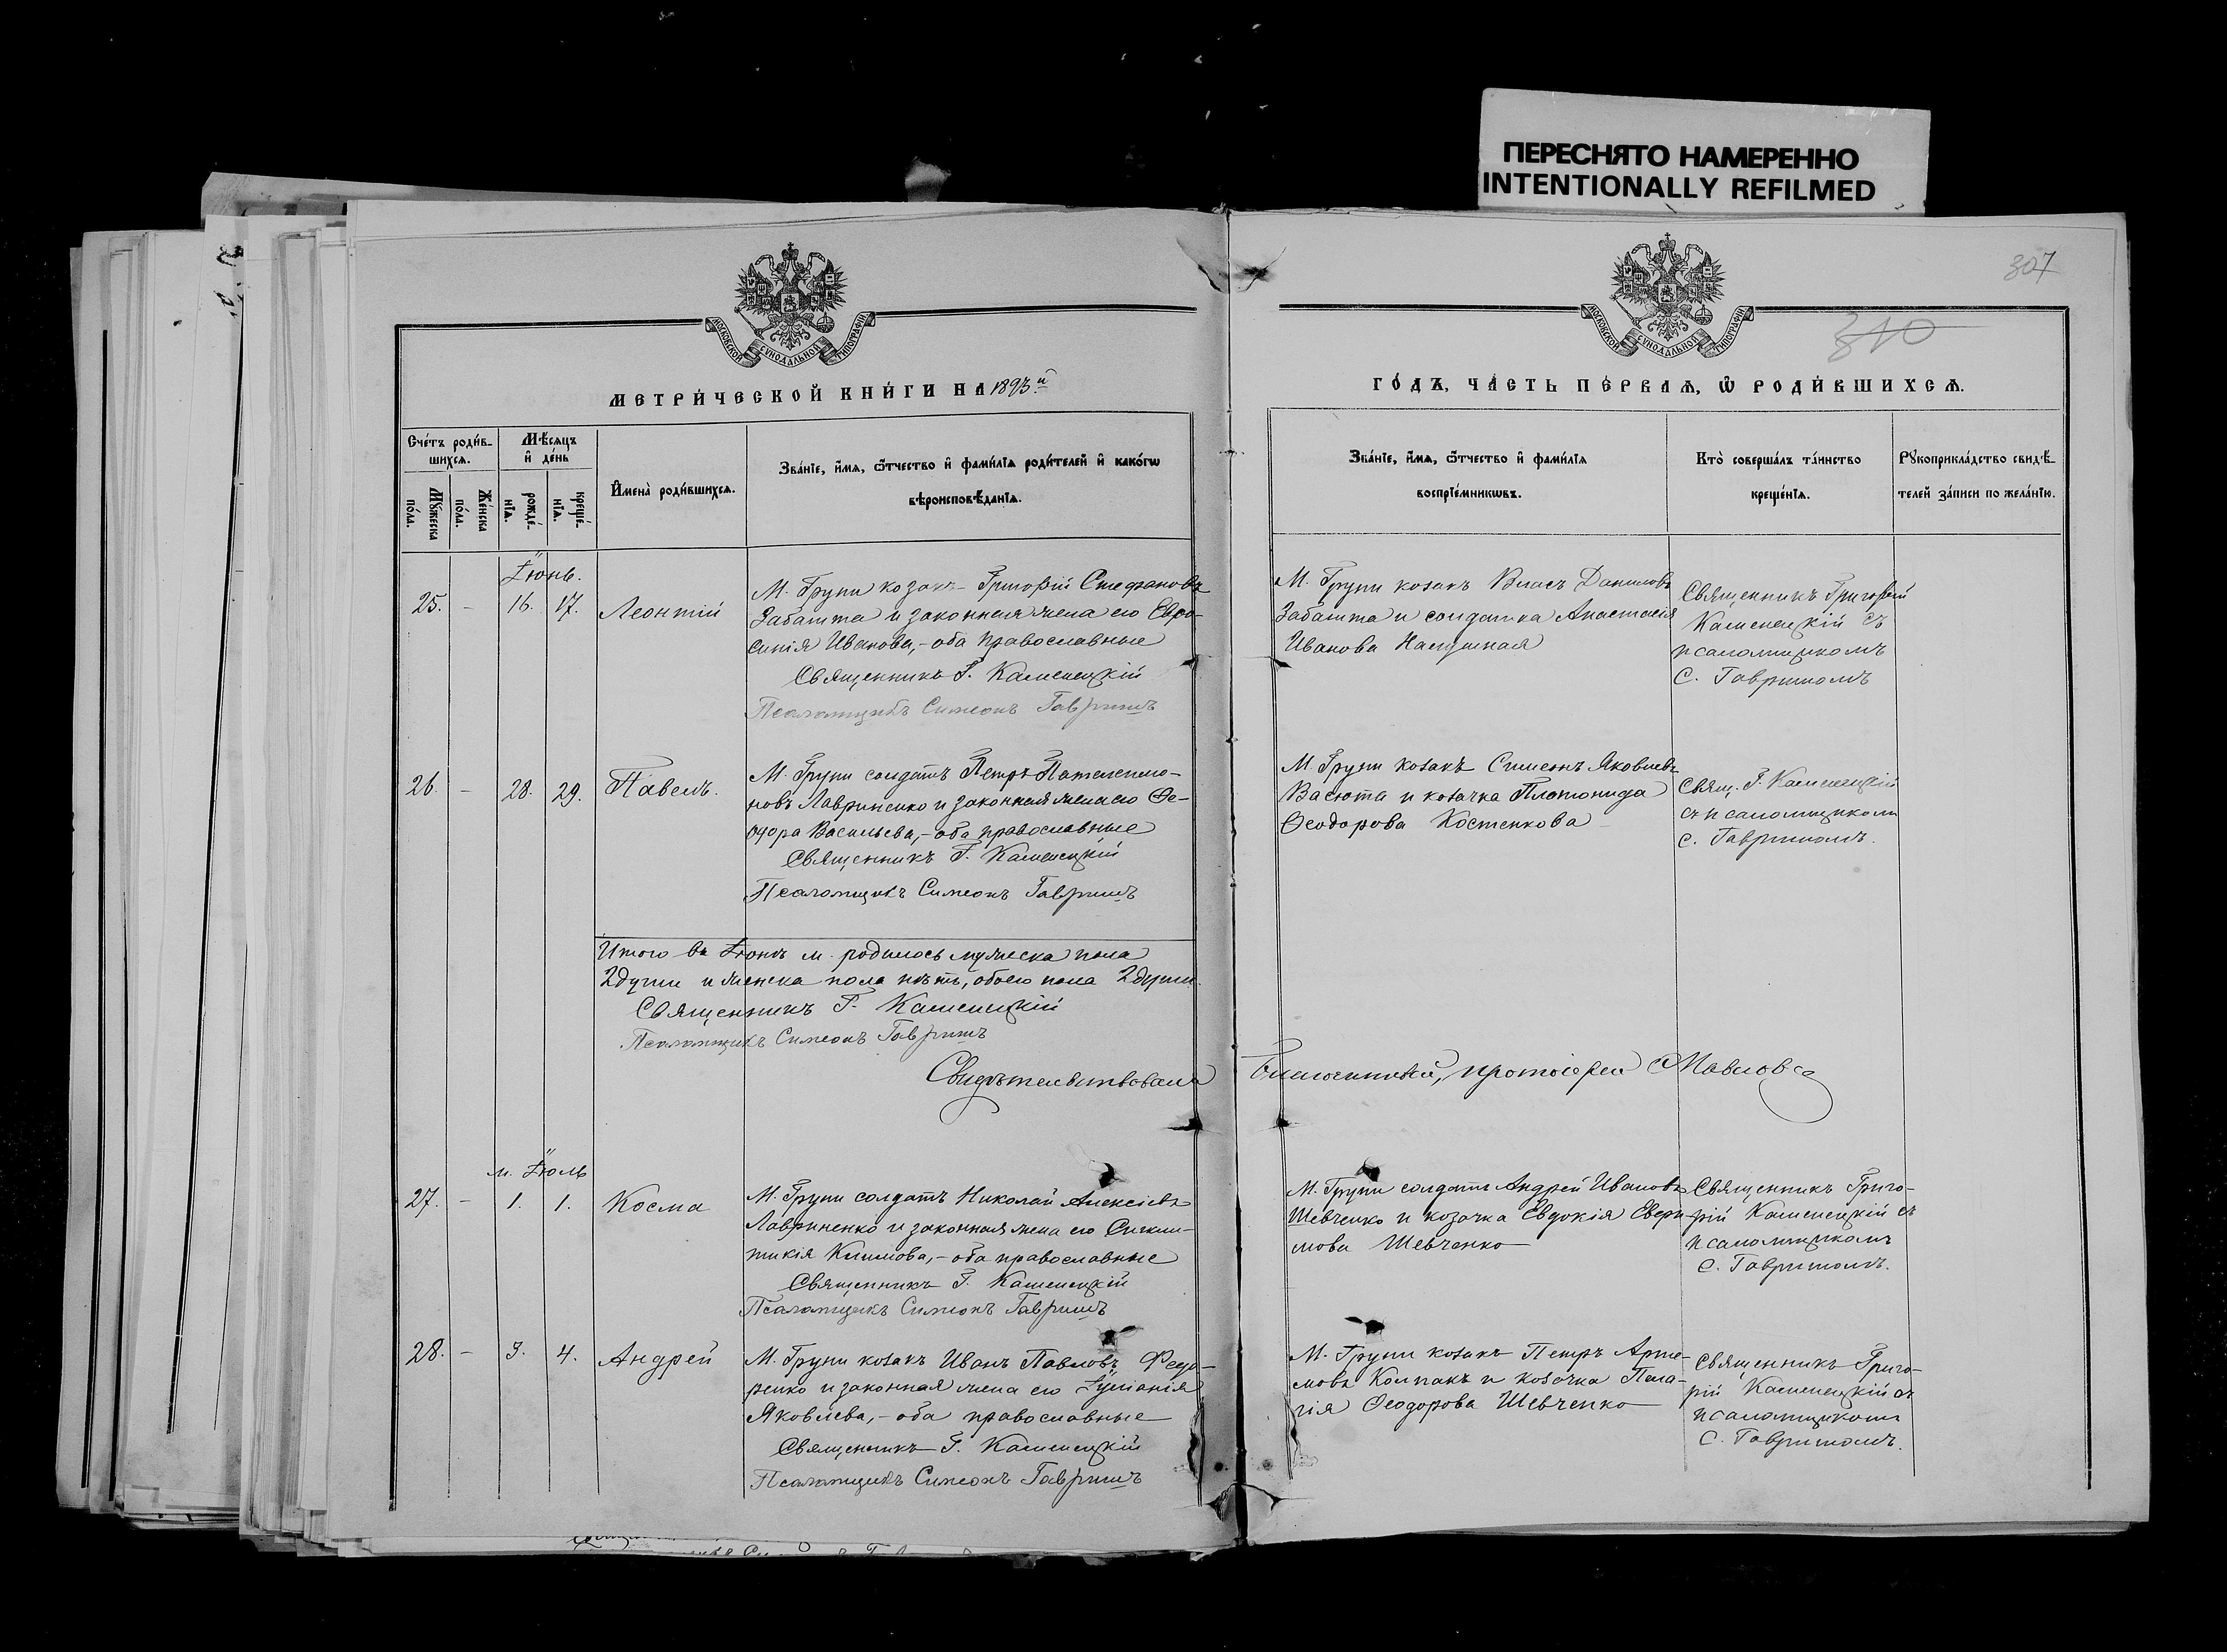 ПЕРЕСНЯТО НАМЕРЕННО
INTENTIONALLY REFILMED
307
310
МОСКОВСКОЙ СУНОДАЛЬНОЙ ТИПОГРАФІИ
МОСКОВСКОЙ СУНОДАЛЬНОЙ ТИПОГРАФІИ
МЕТРИ́ЧЕСКОЙ КНИ́ГИ НА 1893й
ГО́ДЪ, ЧА́СТЬ ПЕ́РВАѦ, Ѡ҆ РОДИ́ВШИХСѦ.
Сче́тъ роди́в-
шихсѧ.
Мꙋ́жеска
по́ла.
Же́нска
по́ла.
Мѣ́сѧцъ
и҆ де́нь
рожде́-
нїѧ.
креще́-
нїѧ.
И҆мена̀ роди́вшихсѧ.
Зва́нїе, и҆́мѧ, ѻ҆́тчество и҆ фами́лїѧ роди́телей и҆ како́гѡ
вѣроисповѣ́данїѧ.
Зва́нїе, и҆́мѧ, ѻ҆́тчество и҆ фами́лїѧ
воспрїе́мникѡвъ.
Кто̀ соверша́лъ та́инство
креще́нїѧ.
Рꙋкоприкла́дство свидѣ́-
телей за́писи по жела́нїю.
Іюнь.
25. - 16. 17. Леонтій
М. Груни козакъ Григорій Стефановъ
Забашта и законная жена его Евро-
синія Иванова,- оба православные
Священникъ Г. Каменецкій
Псаломщикъ Симеонъ Гавришъ
М. Груни козакъ Власъ Даниловъ
Забашта и солдатка Анастасія
Иванова
Священникъ Григорій
Каменецкій съ
псаломщикомъ
С. Гавришомъ
26. - 28. 29. Павелъ.
М. Груни солдатъ Петръ Пантелеимо-
новъ Лавриненко и законная жена его Ѳе-
одора Васильева,- оба православные
Священникъ Г. Каменецкій
Псаломщикъ Симеонъ Гавришъ
М. Груни козакъ Симеонъ Яковлевъ
Васюта и козачка Платонида
Ѳеодорова Костенкова
Свящ. Г. Каменецкій
съ псаломщикомъ
С. Гавришомъ.
Итого въ Іюнѣ м. родилось мужеска пола
2 души и женска пола нѣтъ, обоего пола 2 души.
Священникъ Г. Каменецкій
Псаломщикъ Симеонъ Гавришъ
Свидѣтельствовалъ Благочинный, протоіерей Павловъ
м. Іюль
27. - 1. 1. Косма
М. Груни солдатъ Николай Алексіевъ
Лавриненко и законная жена его Синкли-
тикія Климова,- оба православные
Священникъ Г. Каменецкій
Псаломщикъ Симеонъ Гавришъ
М. Груни солдатъ Андрей Ивановъ
Шевченко и козачка Евдокія Евфи-
мова Шевченко
Священникъ Григо-
рій Каменецкій съ
псаломщикомъ
С. Гавришомъ.
28. - 3. 4. Андрей
М. Груни козакъ Иванъ Павловъ Федо-
ренко и законная жена его Іуліанія
Яковлева,- оба православные
Священникъ Г. Каменецкій
Псаломщикъ Симеонъ Гавришъ
М. Груни козакъ Петръ Арте-
мовъ Колпакъ и козачка Пела-
гія Ѳеодорова Шевченко
Священникъ Григо-
рій Каменецкій съ
псаломщикомъ
С. Гавришомъ.